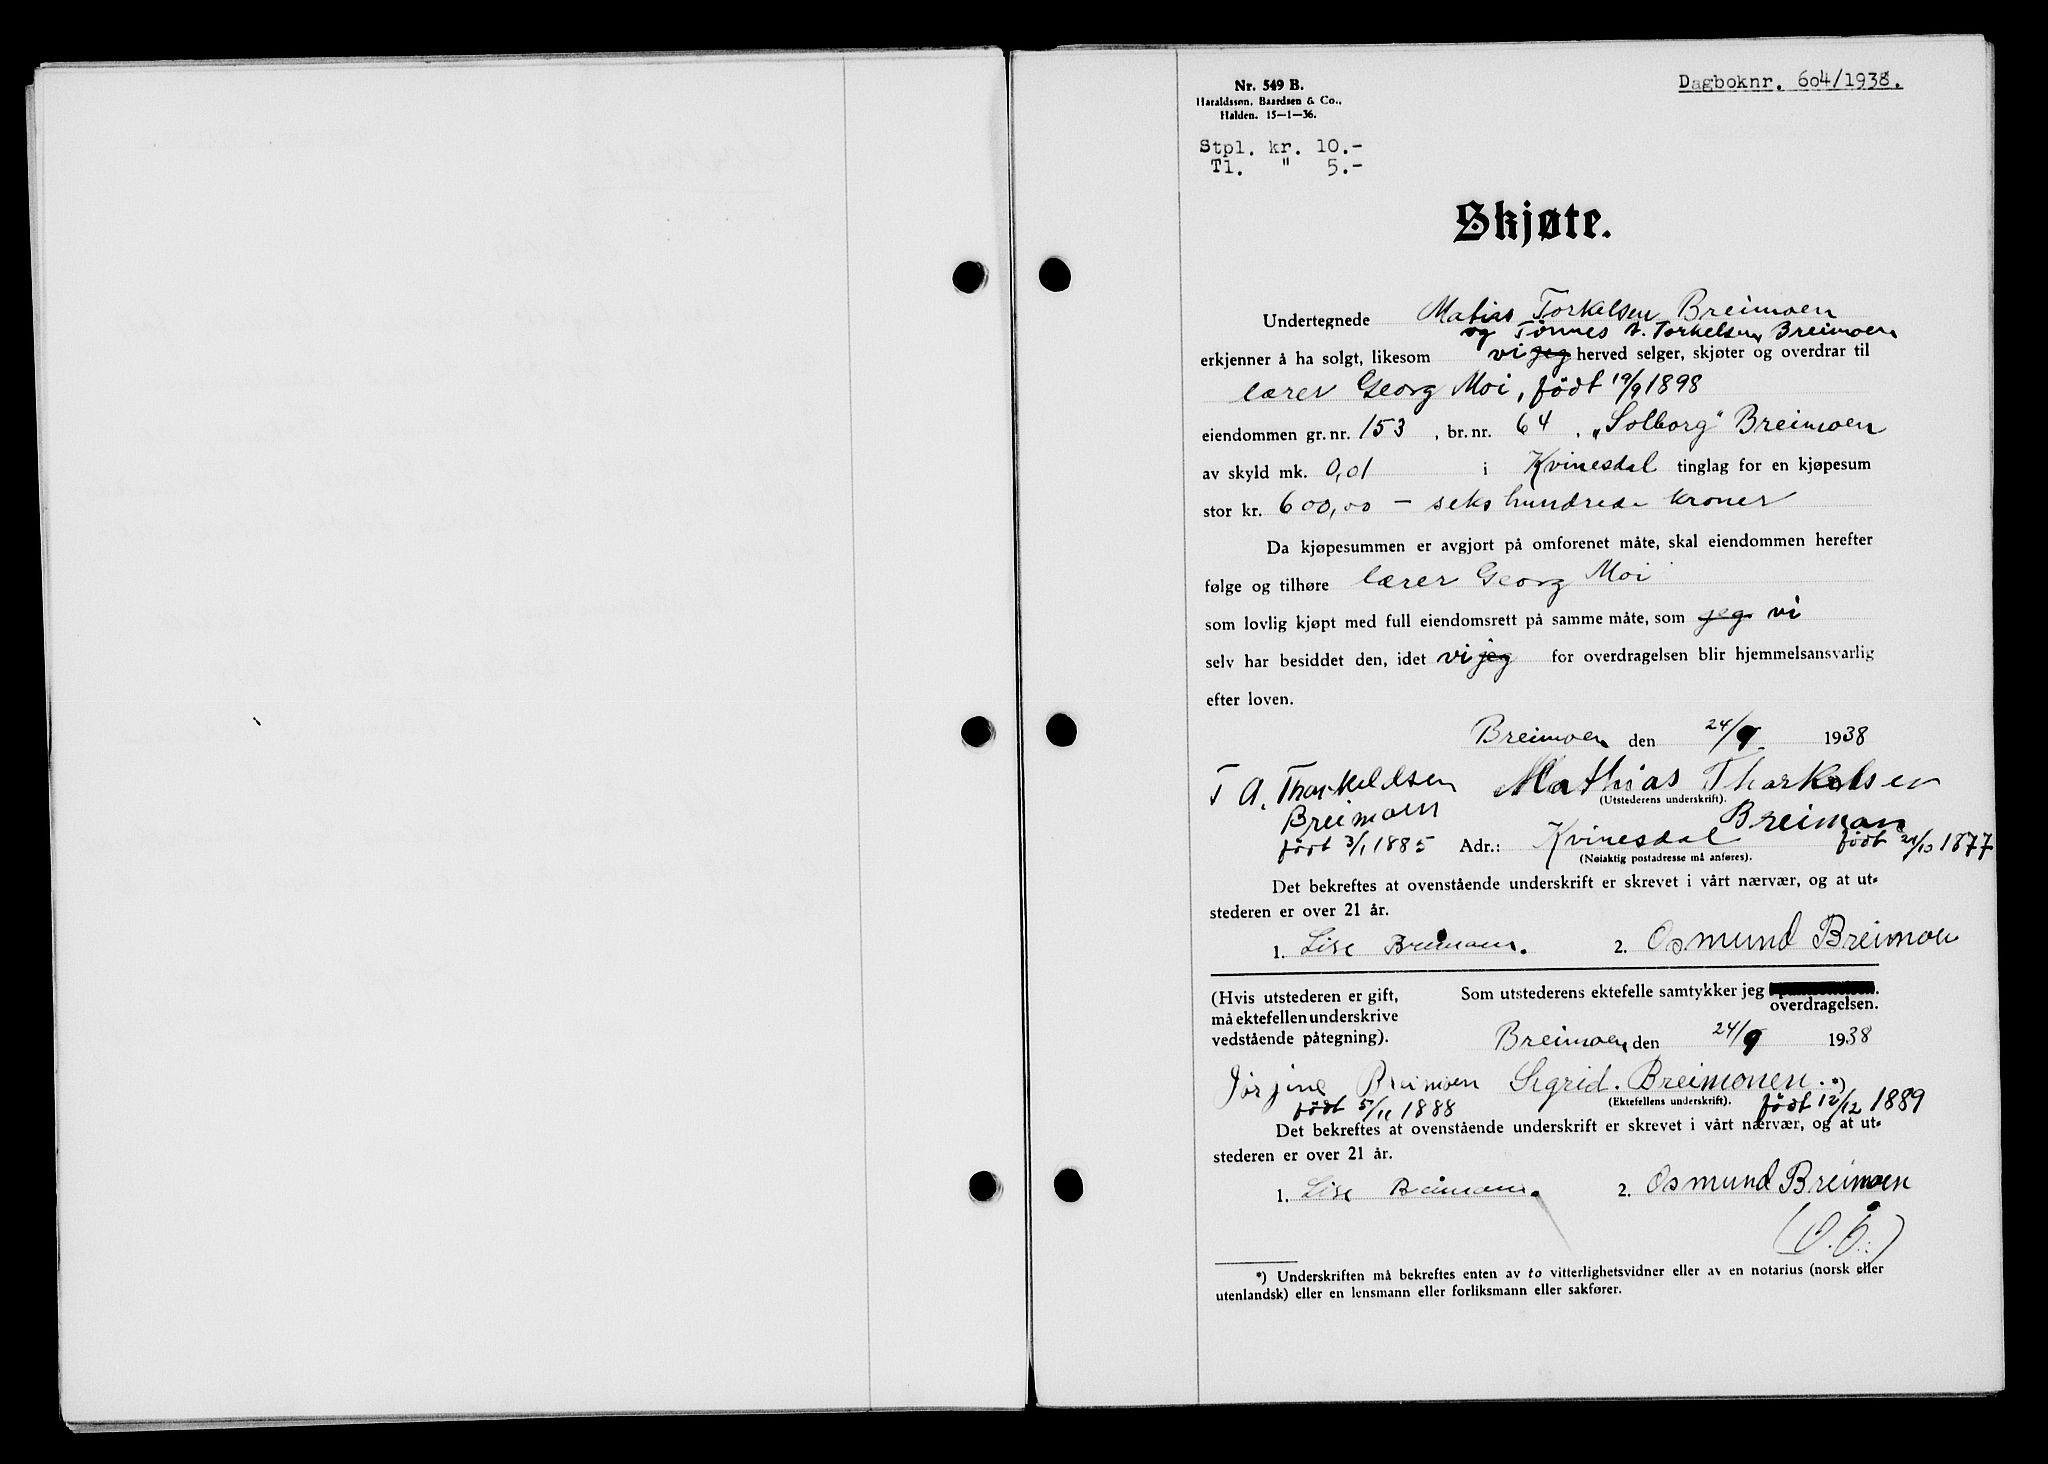 Dagboknr. 604/1938.
Nr. 549 B.
Haraldssøn, Baardsen & Co.,
Halden. 15—1—36.
Stpl. kr. 10.-
Tl. " 5.-
Skjøte.
Undertegnede Matias Torkelsen Breimoen
og Tönnes A. Torkelsen Breimoen
erkjenner å ha solgt, likesom vi jeg herved selger, skjøter og overdrar til
lærer Georg Moi, født 19/9 1898
eiendommen gr. nr. 153, br. nr. 64. „Solborg" Breimoen
av skyld mk. 0,01 i Kvinesdal tinglag for en kjøpesum
stor kr. 600,00 – seks hundrede kroner
Da kjøpesummen er avgjort på omforenet måte, skal eiendommen herefter
følge og tilhøre lærer Georg Moi
som lovlig kjøpt med full eiendomsrett på samme måte, som jeg vi
selv har besiddet den, idet vi jeg for overdragelsen blir hjemmelsansvarlig
efter loven.
Breimoen den 24/9. 1938
T A. Thorkeldsen Mathias Thorkelsen
(Utstederens underskrift).
Breimoen Breimoen
født 3/1 1885 Adr.: Kvinesdal født 21/10 1877
(Nøiaktig postadresse må anføres).
Det bekreftes at ovenstående underskrift er skrevet i vårt nærvær, og at ut-
stederen er over 21 år.
1. Lise Breimoen. 2. Osmund Breimoen
(Hvis utstederen er gift, Som utstederens ektefelle samtykker jeg
må ektefellen underskrive overdragelsen.
vedstående påtegning). Breimoen den 24/9 1938
Jørgine Breimoen Sigrid. Breimonen. *)
født 5/11 1888 (Ektefellens underskrift). født 12/12 1889
Det bekreftes at ovenstående underskrift er skrevet i vårt nærvær, og at ut-
stederen er over 21 år.
1. Lise Breimoen. 2. Osmund Breimoen
*) Underskriften må bekreftes enten av to vitterlighetsvidner eller av en notarius (norsk eller
utenlandsk) eller en lensmann eller forliksmann eller sakfører.